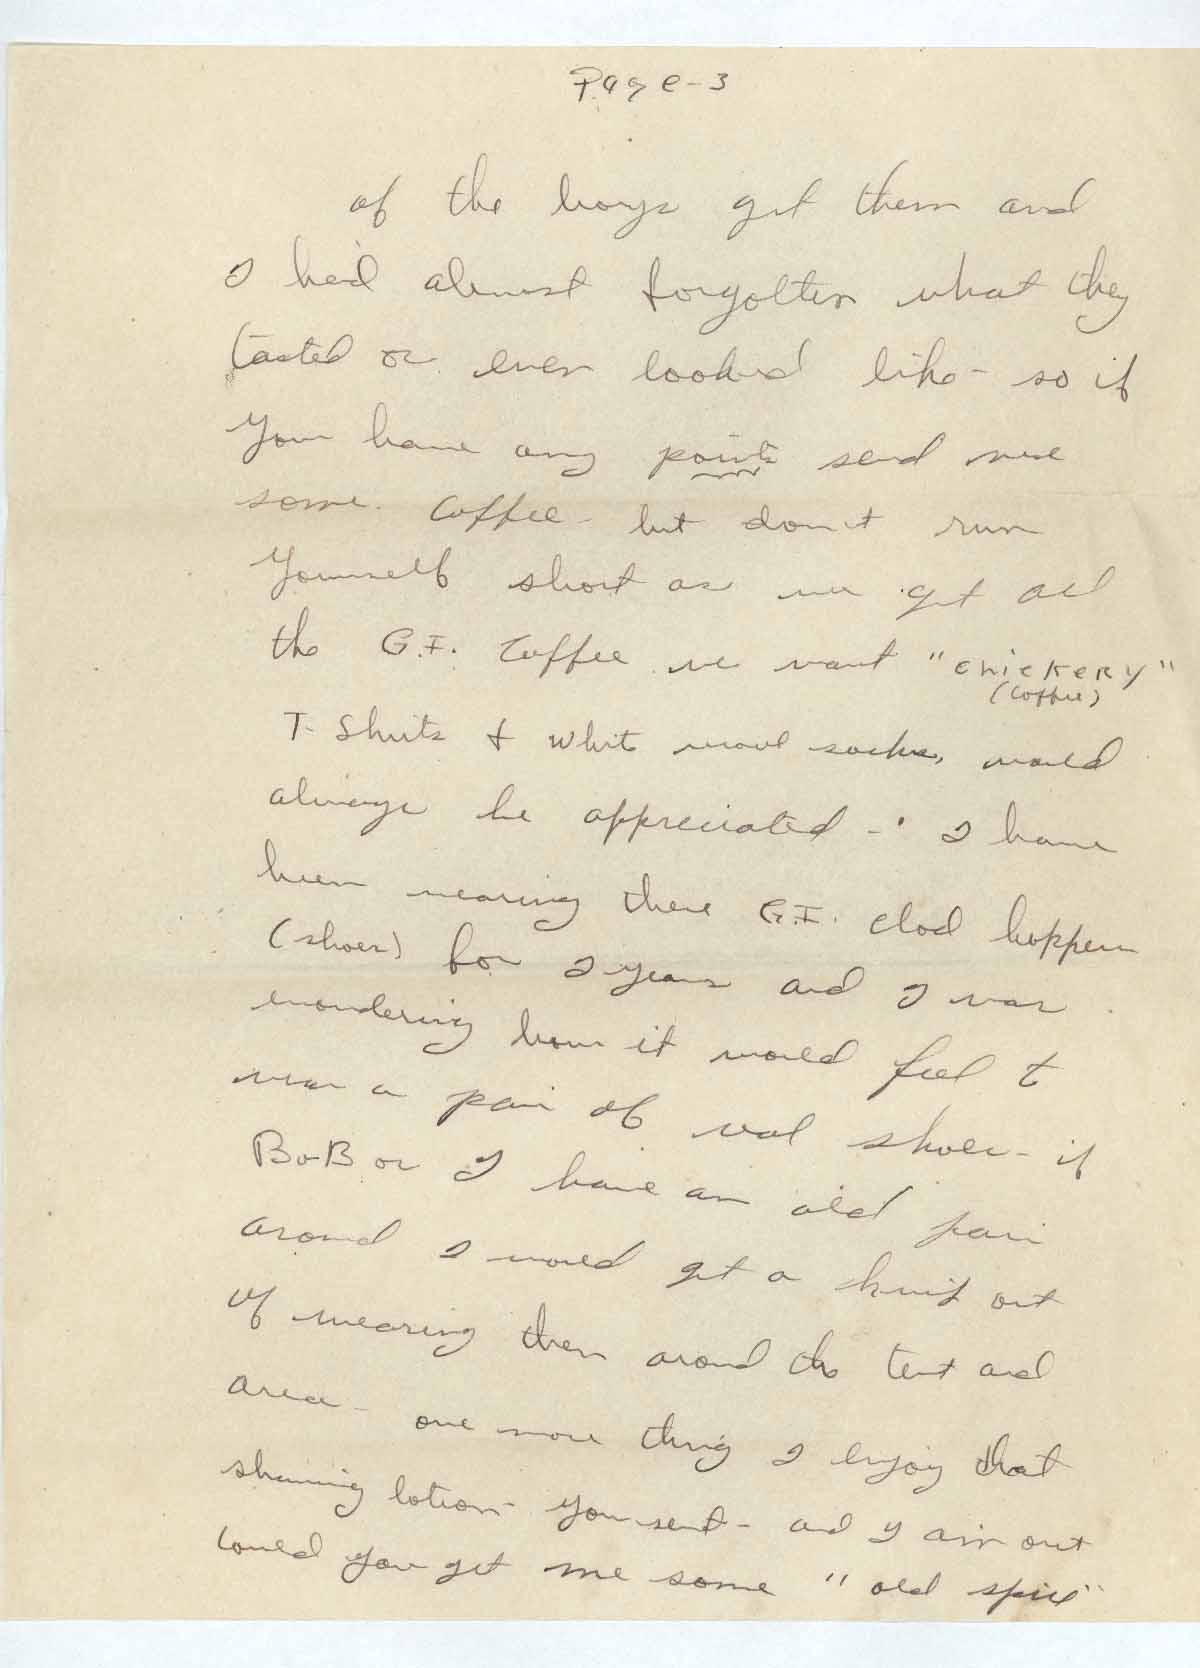 Page-3
of the boys get them and
I had almost forgotten what they
tasted or even looked like - so if
You have any points send me
some. Coffee - but don't run
Yourself short as we get all
the G.I. Coffee we want "CHICKERY"
(Coffee)
T-Shirts & white wool socks, would
always be appreciated - I have
been wearing these G.I. Clod hoppers
(shoes) for 2 years and I was
wondering how it would feel to
wear a pair of real shoes - if
BoB or I have an old pair
around I would get a kick out
of wearing them around the tent and
area - one more thing I enjoy that
shaving lotion you sent - and I am out
could you get me some "old spice"